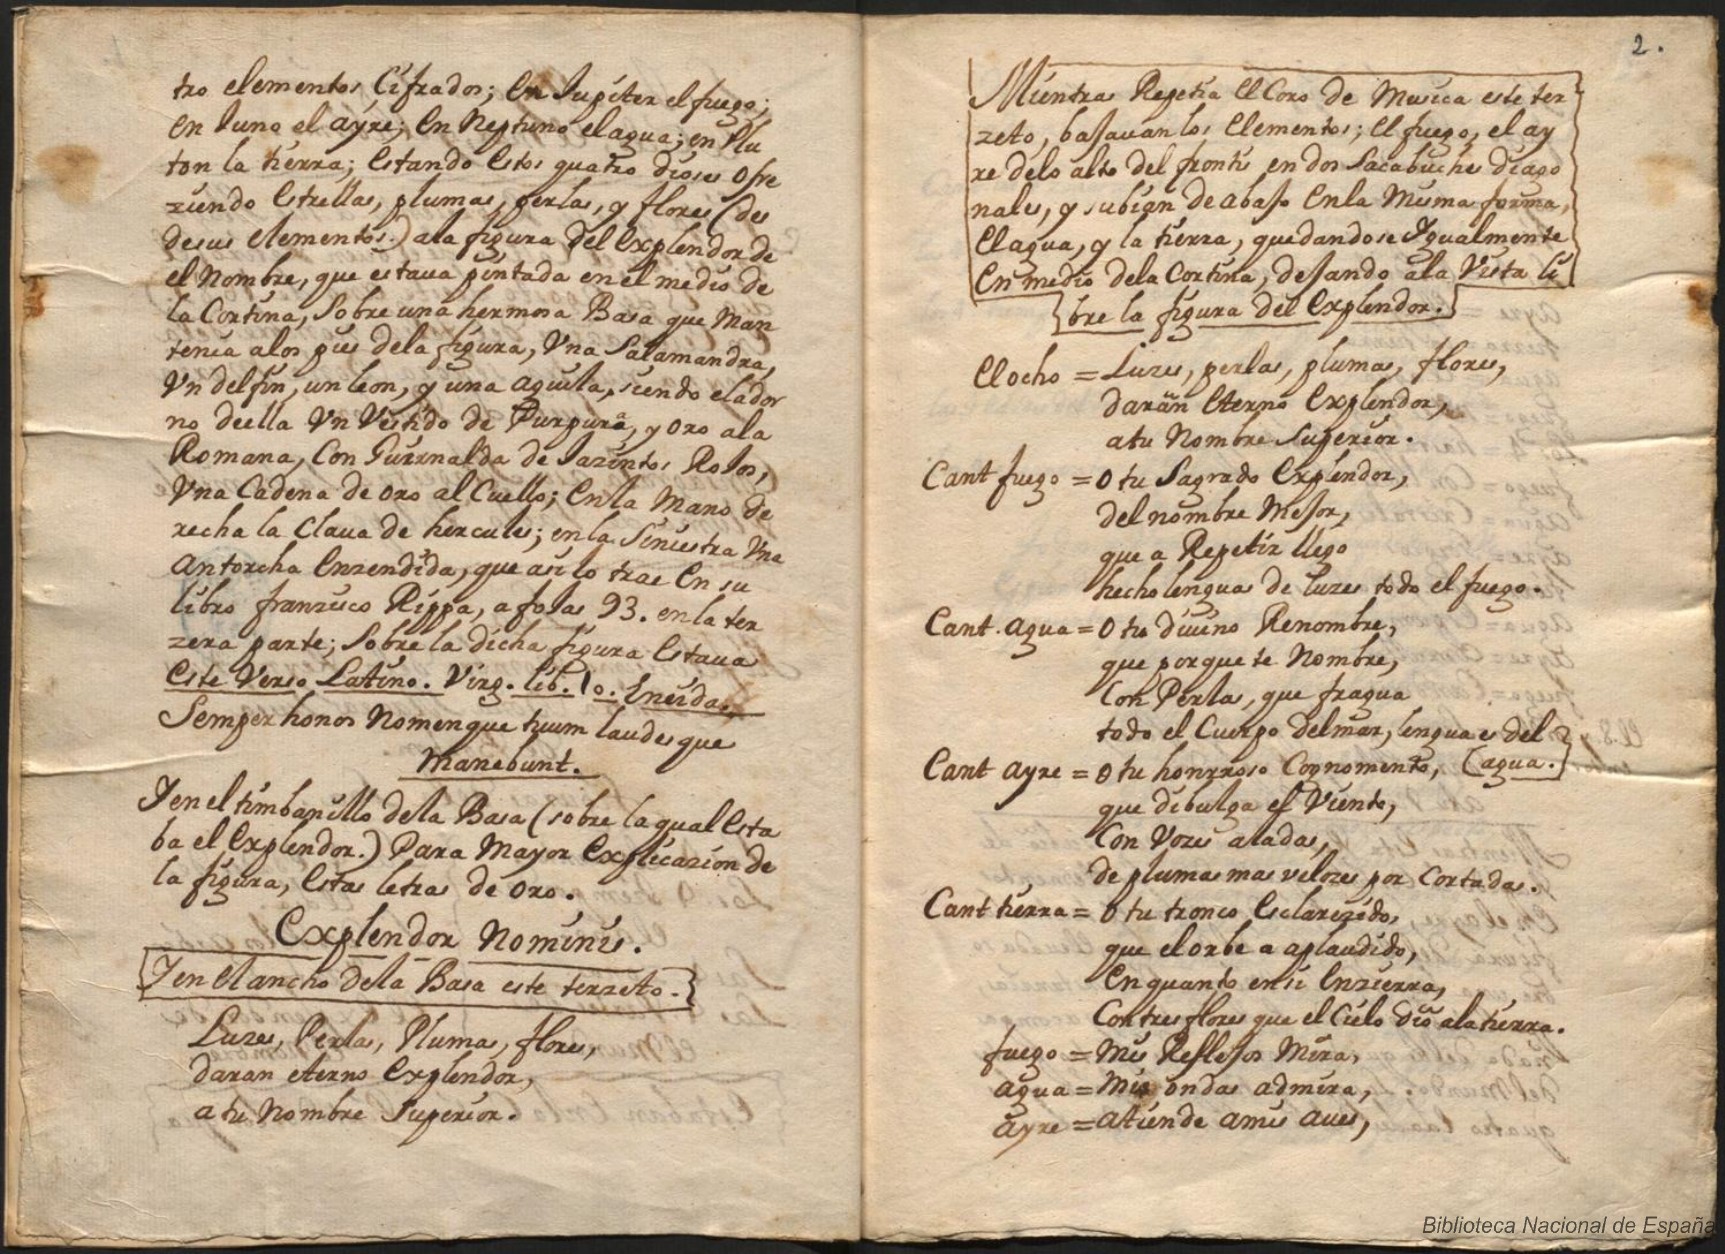 tro elementos Cifrados; En Iupiter el fuego;
En Iuno el ayre; En Neptuno el agua; en Plu
ton la tierra; Estando Estos quatro dioses Ofre
ziendo Estrellas, plumas, perlas, y flores (des
de sus elementos.) a la figura del Explendor de
el Nombre, que estaua pintada en el medio de
la Cortina, Sobre una hermosa Basa que Man
tenia a los pies de la figura, Vna Salamandra,
Vn delfin, un leon, y una aguila, siendo el ador
no de ella Vn Vestido de Purpura, y oro a la
Romana, Con Guirnalda de Iazintos Rojos,
Vna Cadena de oro al Cuello; En la Mano de
recha la Claua de hercules; en la Siniestra Vna
Antorcha Enzendida, que asi lo trae En su
libro franzisco Rippa, a fojas 93. en la ter
zera parte; Sobre la dicha figura Estaua
Este Verso Latino. Virg. lib. 1o. Eneida.
Semper honos Nomenque tuum laudesque
Manebunt.
Y en el timbanillo de la Basa (sobre la qual Esta
ba el Explendor.) Para Mayor Explicazion de
la figura, Estas letras de oro.
Explendor Nominis.
Y en El ancho de la Basa este terzeto.
Luzes, Perlas, Plumas, flores,
daran eterno Explendor,
a tu Nombre Superior.
2.
Mientras Repetia El Coro de Musica este ter
zeto, bajauan los Elementos; El fuego, el ay
re de lo alto del frontis en dos Sacabuches diago
nales, y subian de abajo En la Misma forma,
El agua, y la tierra, quedandose Igualmente
En medio de la Cortina, dejando a la Vista li
bre la figura del Explendor.
El ocho = Luzes, perlas, plumas, flores,
darán Eterno Explendor,
a tu Nombre Superior.
Cant fuego = O tu Sagrado Explendor,
del nombre Mejor,
que a Repetir llego
hecho lenguas de luzes todo el fuego.
Cant. agua = O tu diuino Renombre,
que porque te Nombre,
Con Perlas, que fragua
todo el Cuerpo del mar, lenguas del
(agua.
Cant ayre = O tu honrroso Cognomento,
que dibulga el Viento,
Con Vozes aladas,
de plumas mas velozes por Cortadas.
Cant tierra = O tu tronco Esclarezido,
que el orbe a aplaudido,
En quanto en si Enzierra,
Con tres flores que el Cielo dió a la tierra.
fuego = Mis Reflejos Mira,
agua = Mis ondas admira,
ayre = Atiende a mis aues,
Biblioteca Nacional de España